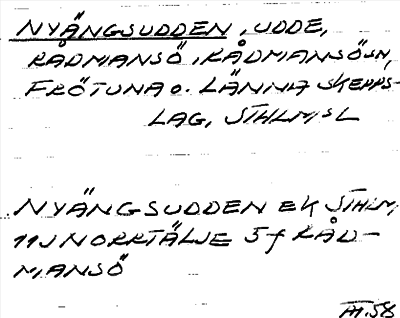 NYÄNGSUDDEN, UDDE,
RÅDMANSÖ, RÅDMANSÖ SN,
FRÖTUNA O. LÄNNA SKEPPS-
LAG, STHLMS L
NYÄNGSUDDEN EK STHLM
11J NORRTÄLJE 5f RÅD-
MANSÖ
58